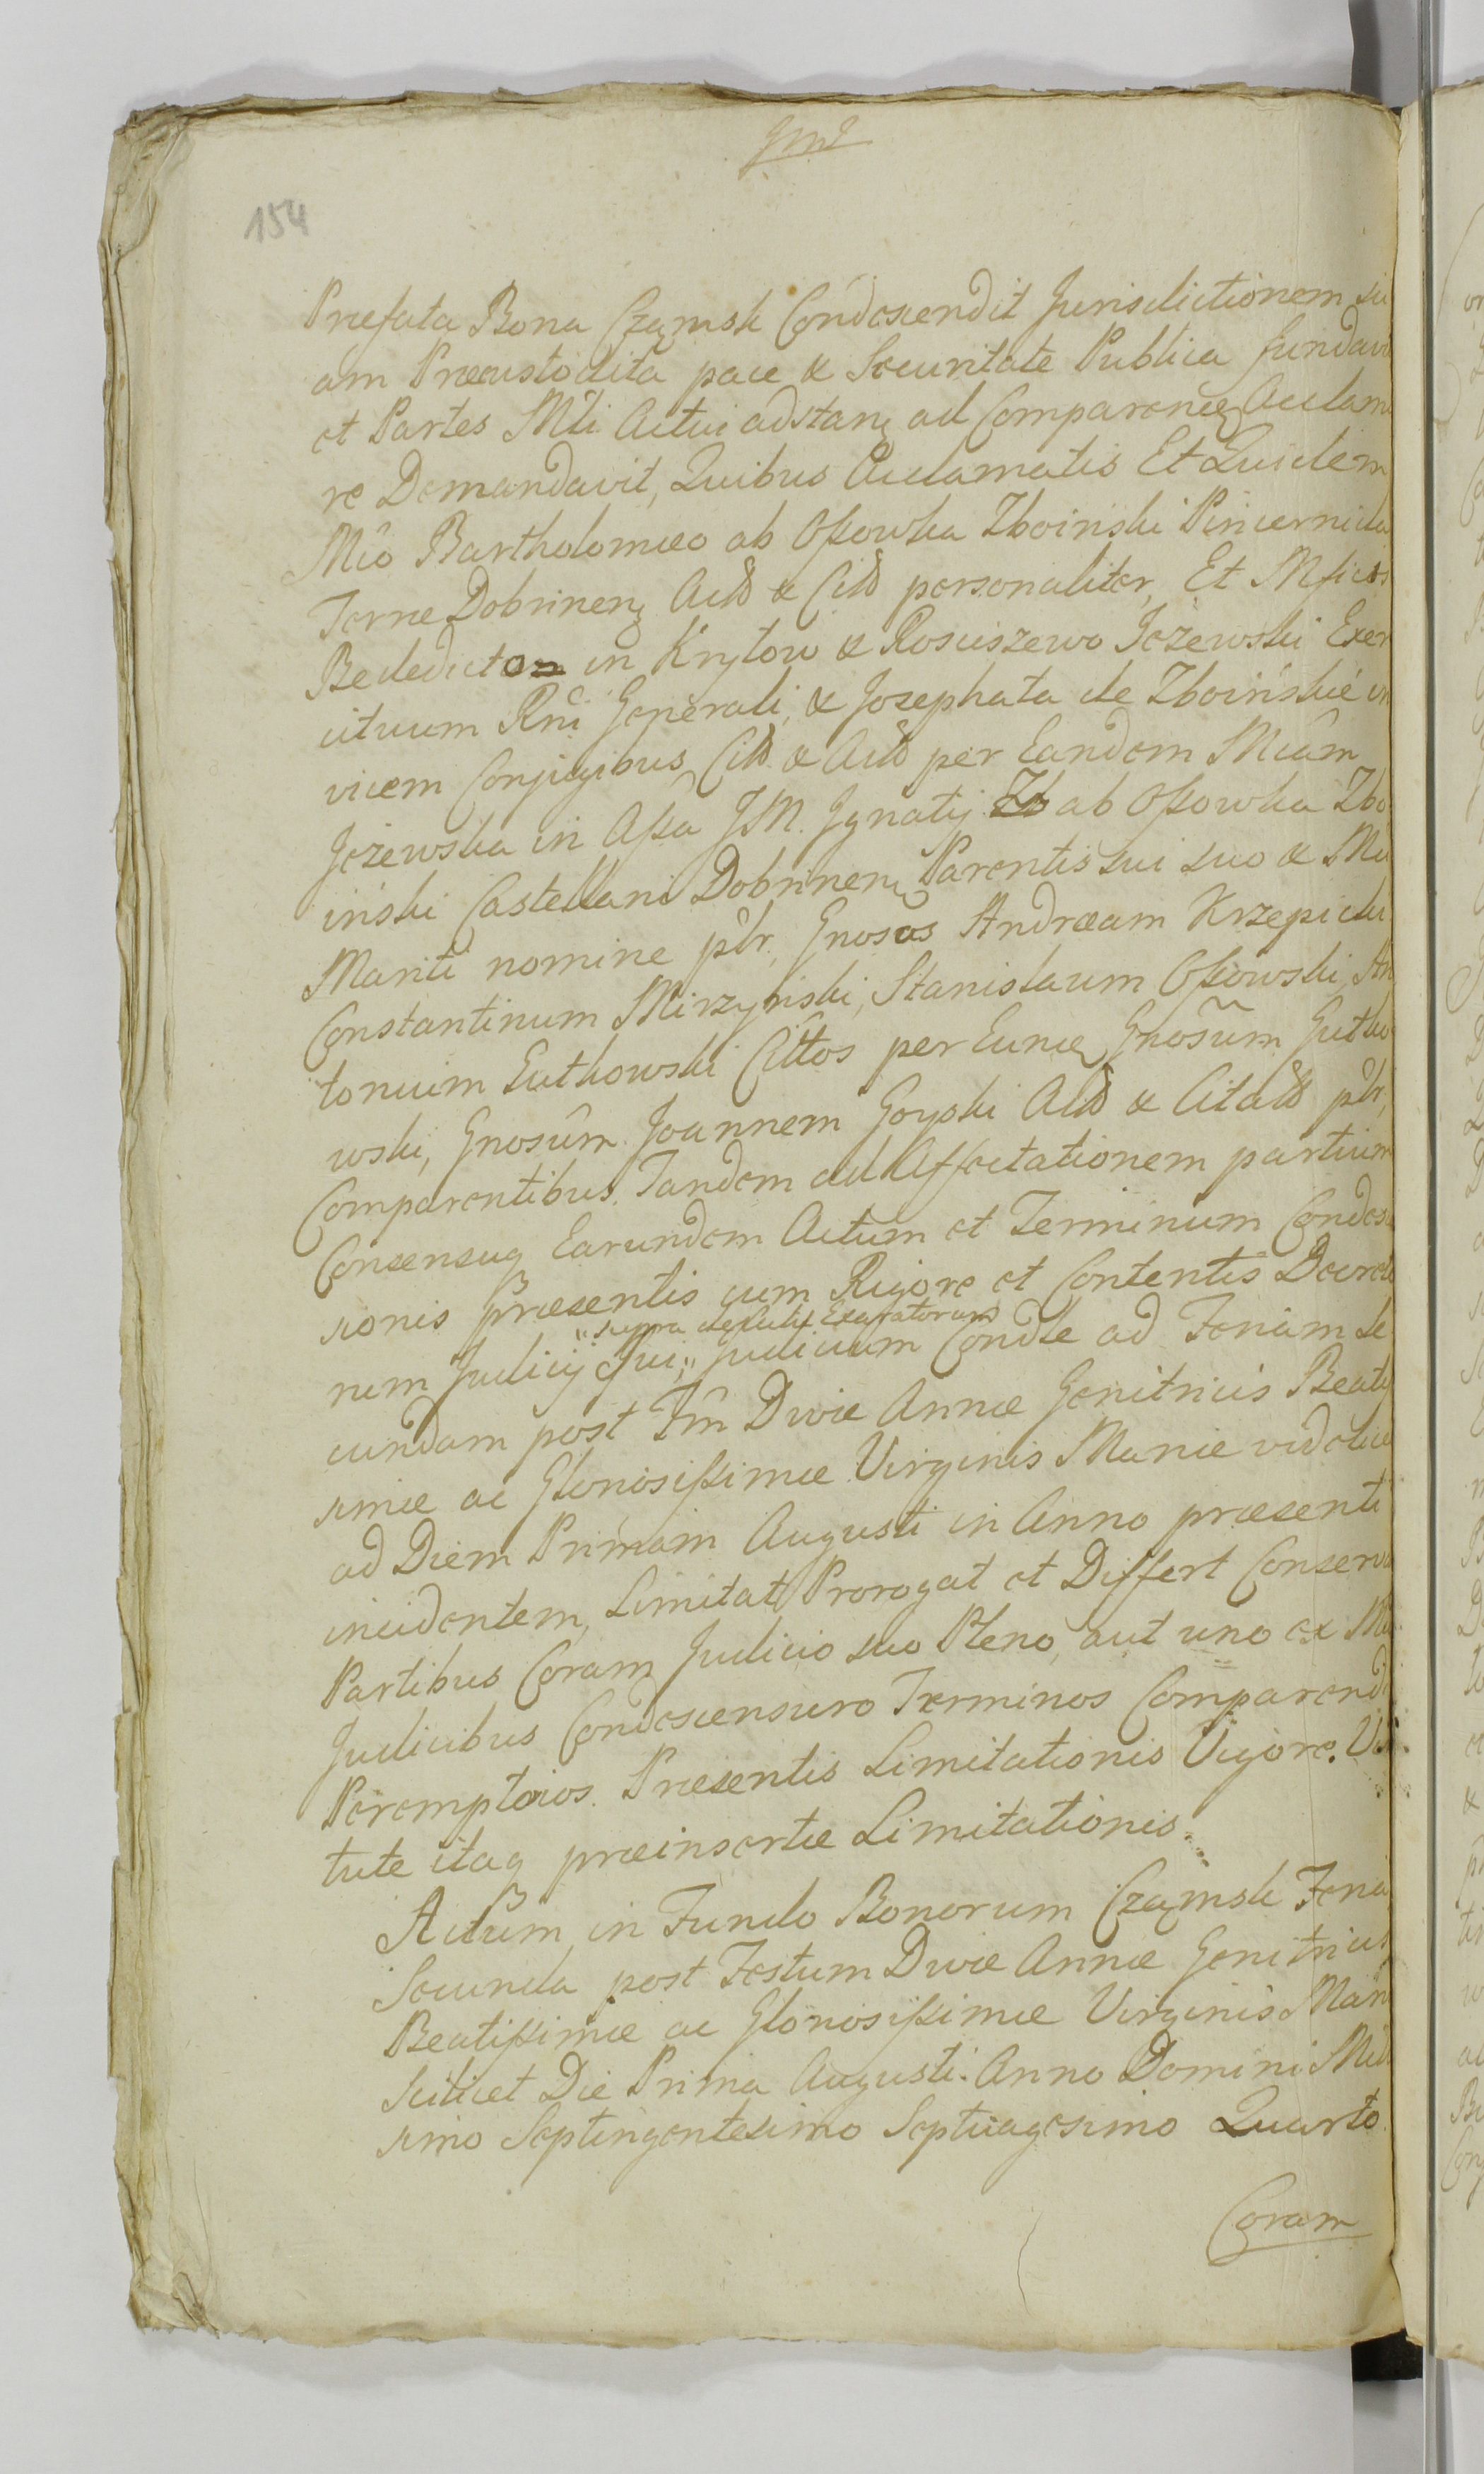 154
Præfata Bona Czamsk Condescendit Jurisdictionem su
am Præcustodita pace & Securitate Publica fundavit
et Partes Mti Actui adstanq ad Comparenq Acclama
re Demandavit, Quibus Acclamatis Et Quidem
Mco Bartholomæo ab Ossowka Zboinski Pincernida
Terræ Dobrinenq Actd & Citd personaliter, Et Mficis
Bededicto in Krytow & Rosciszewo Jeżewski Exer
cituum Rni Generali, & Josephata de Zboińskie in
vicem Conjugibus Citd & Actd per Eandem Mcam
Jeżewska in Assa JM. Jgnatij Zb ab Ossowka Zbo
inski Castellani Dobrinenq Parentis sui suo & Mci
Mariti nomine pbr, Gnosos Andræam Krzepicki
Constantinum Mirzynski, Stanislaum Ossowski, An
tonium Gutkowski Cittos per Eunq Gnosum Gutko
wski, Gnosum Joannem Goyski Actd & Citatd pbr,
Comparentibus. Tandem ad Affectationem partium
Consensuq Earundem Actum et Terminum Condes
sionis Præsentis cum Rigore et Contentis Decreto
"supra Exaratorum
rum Judicij Sui,, Judicium Condle ad Feriam Se
cundam post Fm Divæ Annæ Genitricis Beatis
simæ ac Gloriosissimæ Virginis Mariæ videlice
ad Diem Primam Augusti in Anno præsenti
incidentem, Limitat Prorogat et Differt Conserva
Partibus Coram Judicio suo Pleno, aut uno ex Mcis
Judicibus Condescensuro Terminos Comparendi
Peremptoios. Præsentis Limitationis Vigore. Vir
tute itaq præinsertæ Limitationis.
Actum in Fundo Bonorum Czamsk Feria
Secunda post Festum Divæ Annæ Genitricis
Beatissimæ ac Gloriosissimæ Virginis Mari
Scilicet Die Prima Augusti. Anno Domini Mille
simo Septingentesimo Septuagesimo Quarto.
Coram